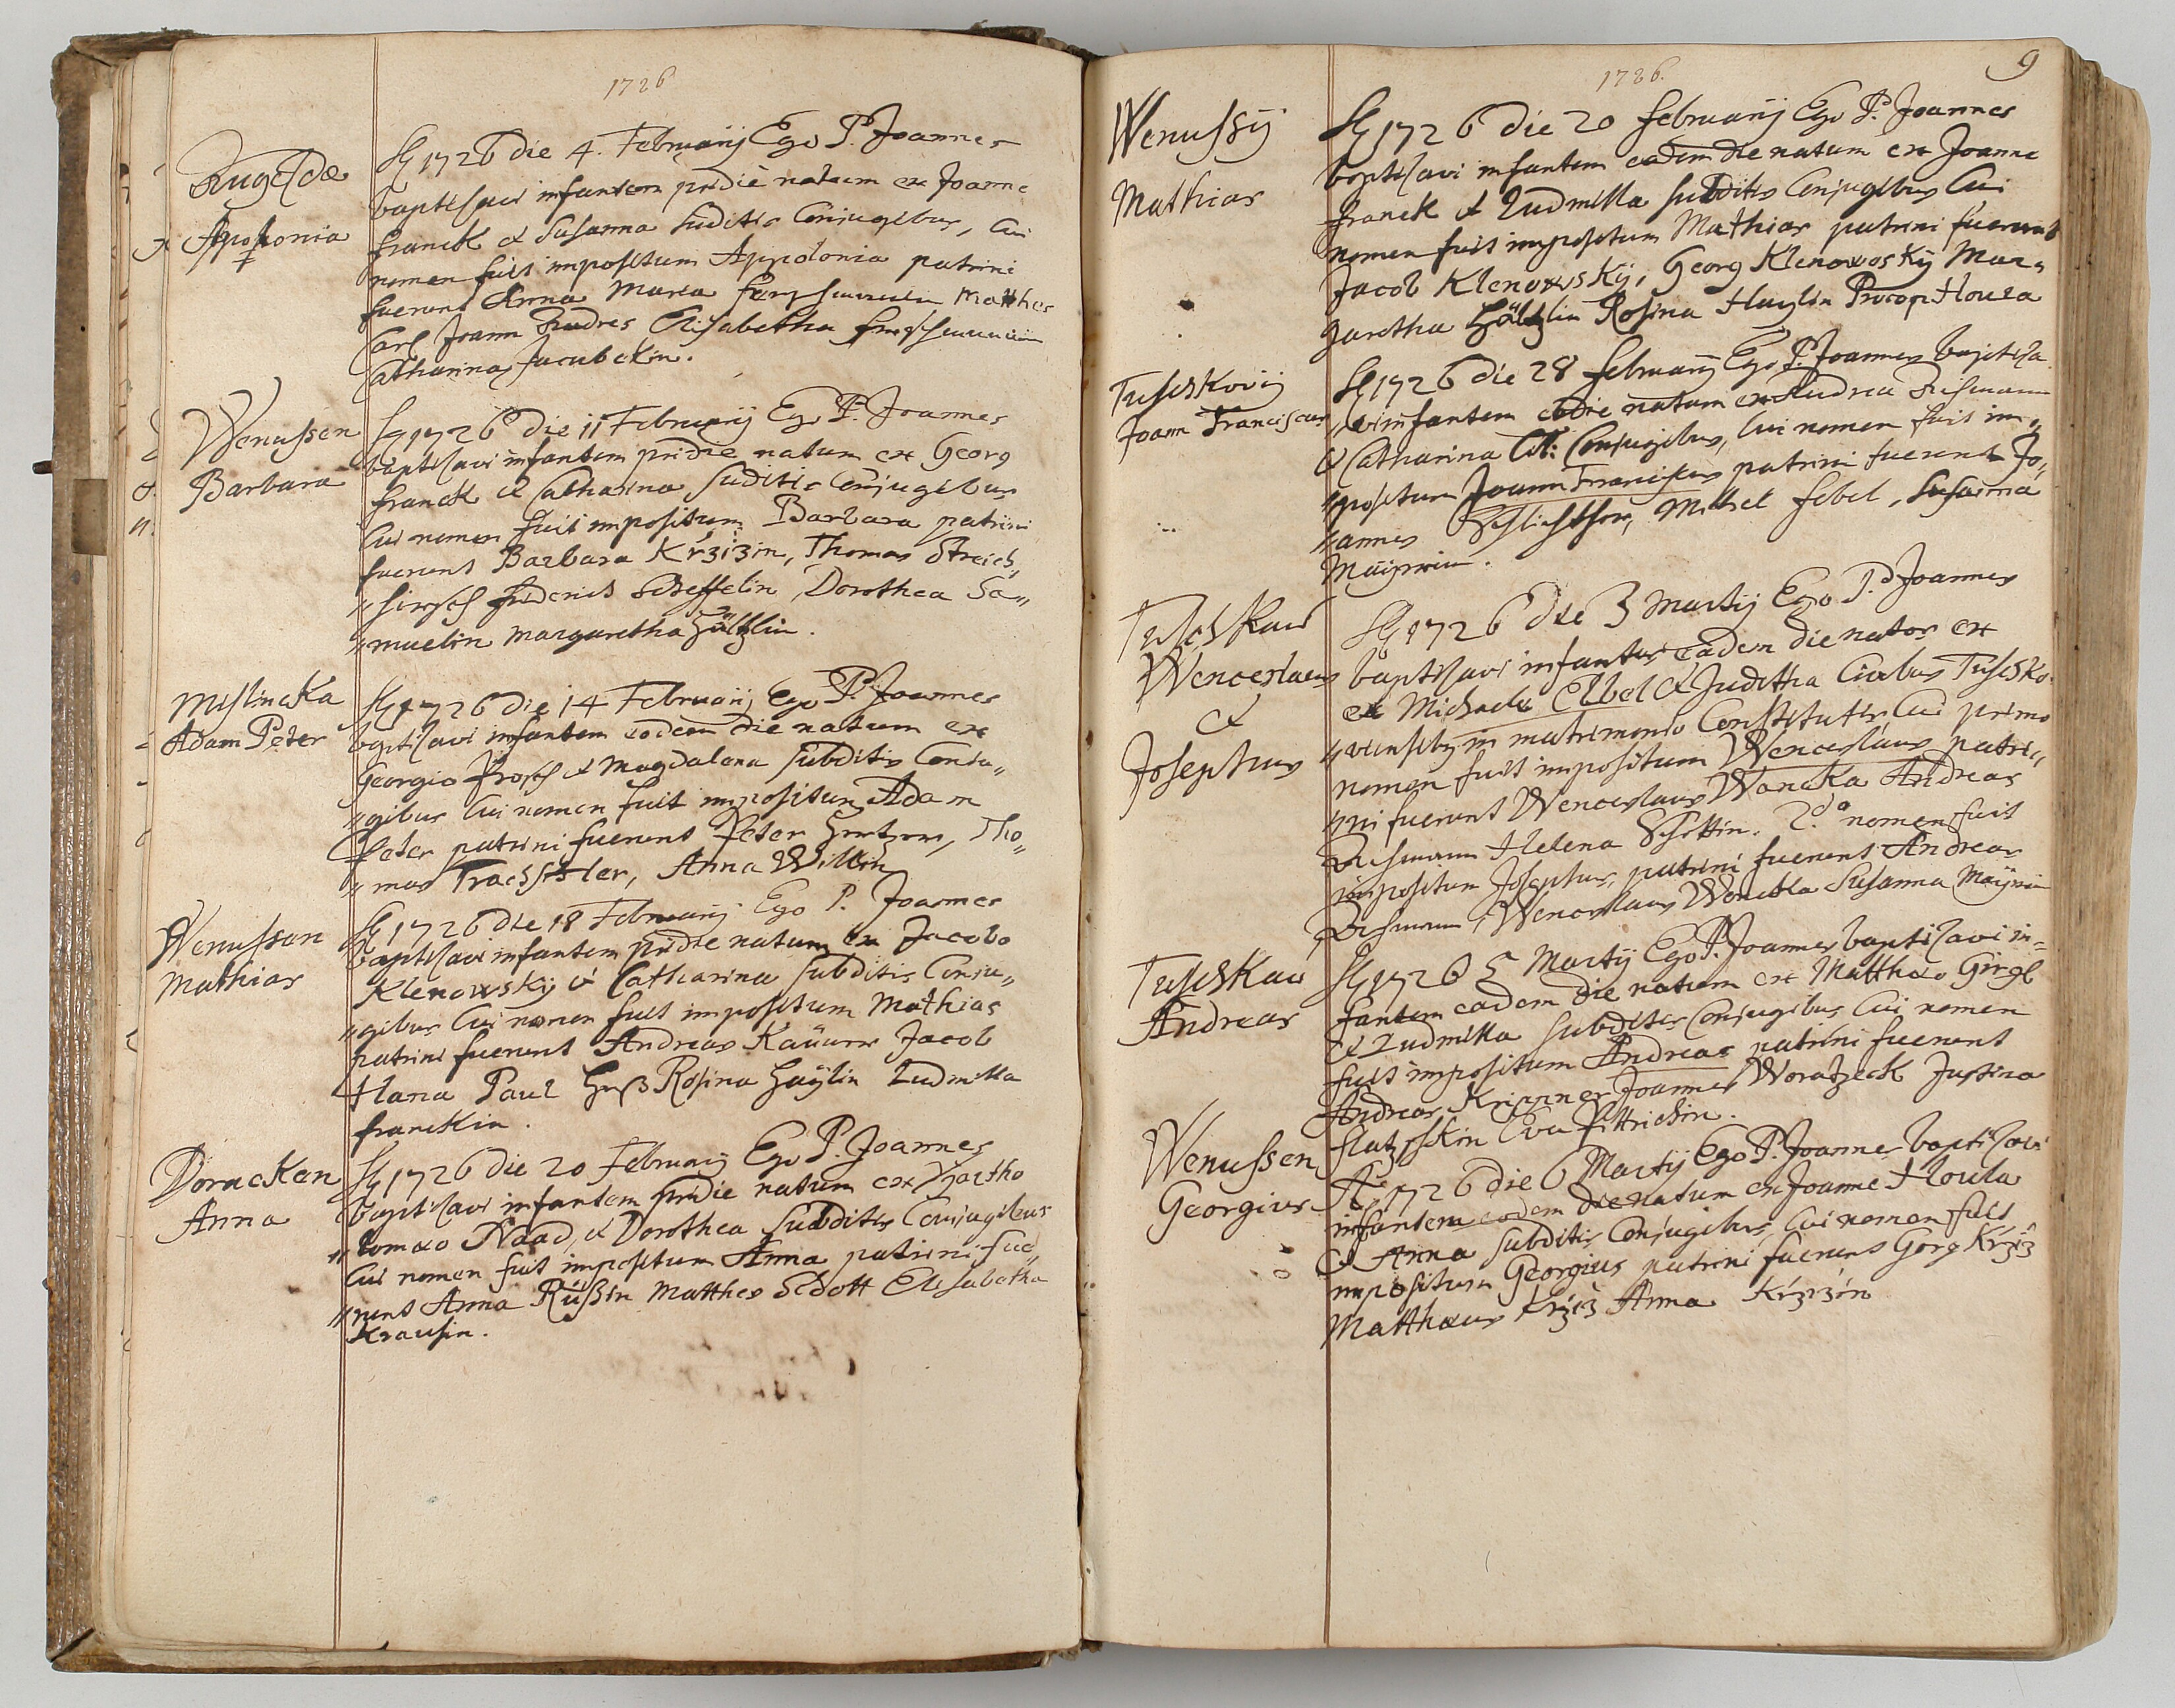 1726
Apollonia
A 1726 die 4. Februarij Ego P. Joannes
baptisavi infantem pridie natum ex Joanne
Franck & Susanna Suditis Conjugibus, Cui
nomen fuit impositum Appolonia patrini
fuerunt Anna Maria Matthes
Carl Joann Andres Elisabetha
Catharina Jacubckin.
Wenussen
Barbara
A 1726 die 11 Februarij Ego P. Joannes
baptisavi infantem pridie natum ex Georg
Franck & Catharina Suditis Conjugibus
Cui nomen fuit impositum Barbara patrini
fuerunt Barbara Krzizin, Thomas Streich„
„hirsch Friderich Scheffelin, Dorothea Sa„
„muelin Margaretha Hältzlin.
Mislincka
Adam Peter
A 1726 die 14 Februarij Ego P. Joannes
baptisavi infantem eodem die natum ex
Georgio Frosch & Magdalena Subditis Conju„
„gibus Cui nomen fuit impositum Adam
Peter patrini fuerunt Peter Tho„
„mas Anna Willin
Wenussen
Mathias
A 1726 die 18 Februarij Ego P. Joannes
baptisavi infantem pridie natum ex Jacobo
Klenowskij & Catharina Subditis Conju„
„gibus Cui nomen fuit impositum Mathias
patrini fuerunt Andreas Jacob
Hana Paul Rosina Haÿlin Ludmilla
Franckin.
Dornckan
Anna
A 1726 die 20 Februarij Ego P. Joannes
baptisavi infantem pridie natum ex Bartho
„lomæo Naad, & Dorothea Subditis Conjugibus
Cui nomen fuit impositum Anna patrini fue„
„runt Anna Rüssin Matthes Schott Elisabetha
Krausin.
1726.
9
Wenussÿ
Mathias
A 1726 die 20 Februarij Ego P. Joannes
baptisavi infantem eadem die natum ex Joanne
Franck & Ludmilla Subditis Conjugibus Cui
nomen fuit impositum Mathias patrini fuerunt
Jacob Klenowskÿ, Georg Klenowoskÿ Mar„
garetha Hältzlin Rosina Haylin Procop Houza
Tuschkovij
Joann Franciscus
A 1726 die 28 Februarij Ego P. Joannes baptisa
„vi infantem eodie natum ex Andrea Dischmann
& Catharina Conjugibus, Cui nomen fuit im„
„positum Joann Franciscus patrini fuerunt Jo„
„annes Michel Febel, Susanna
Maÿrin.
Tuschkau
Wenceslaus
&
Josephus
A 1726 die 3 Martij Ego P. Joannes
baptisavi infantes eadem die natos ex
ex Michaele Elbel & Juditha Civibus Tuschko„
„viensibus in matrimonio Constitutis Cui primo
nomen fuit impositum Wenceslaus patri„
„ni fuerunt Wenceslaus Wancka Andreas
Dischmann Helena Schottin. 2do nomen fuit
impositum Josephus, patrini fuerunt Andreas
Dischmann, Wenceslaus Wancka Susanna Maÿrin
Tuschkau
Andreas
A 1726 5 Martij Ego P. Joannes baptisavi in„
fantem eadem die natum ex Matthæo Girgl
& Ludmilla Subditis Conjugibus Cui nomen
fuit impositum Andreas patrini fuerunt
Andreas Krippner Joannes Woratzeck Justina
Eva Fittrichin.
Wenussen
Georgius
A 1726 die 6 Martij Ego P. Joannes baptisavi
infantem eodem die natum ex Joanne Houla
& Anna Subditis Conjugibus, Cui nomen fuit
impositum Georgius patrini fuerunt Gorg Krziz
Matthæus Krziz Anna Krzizin